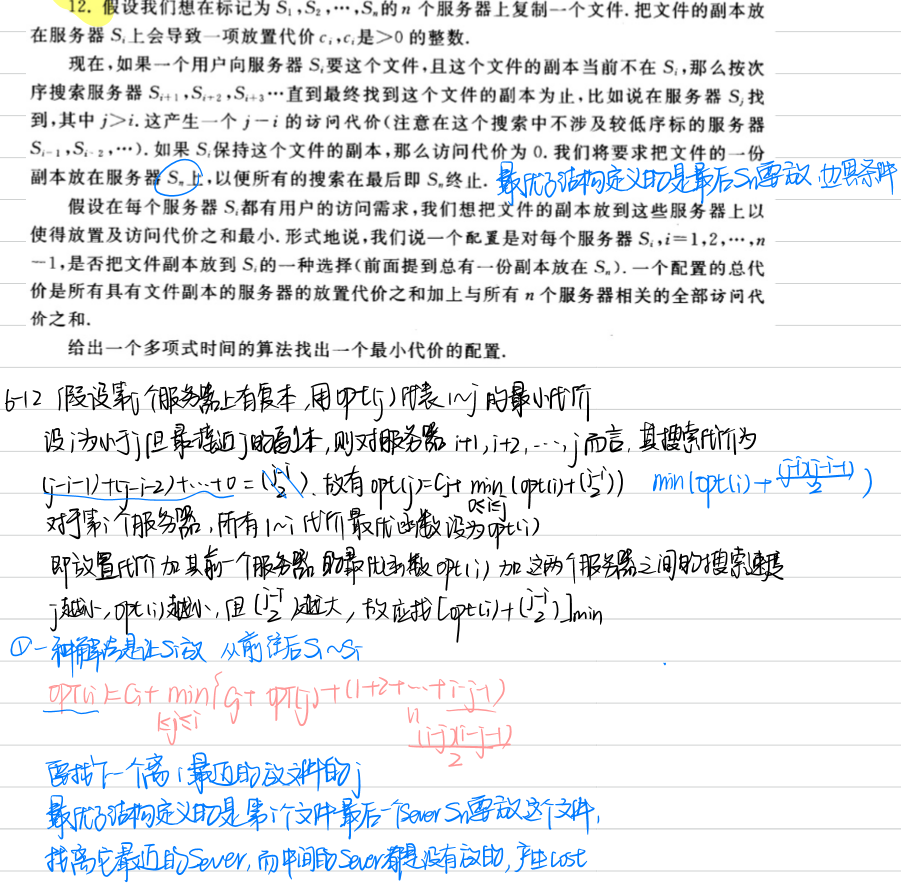 12. 假设我们想在标记为 S₁,S₂,…,Sₙ的 n 个服务器上复制一个文件. 把文件的副本放
在服务器 Sᵢ上会导致一项放置代价 cᵢ,cᵢ是>0 的整数.
现在,如果一个用户向服务器 Sᵢ要这个文件,且这个文件的副本当前不在 Sᵢ,那么按次
序搜索服务器 Sᵢ₊₁,Sᵢ₊₂,Sᵢ₊₃…直到最终找到这个文件的副本为止,比如说在服务器 Sⱼ找
到,其中 j>i. 这产生一个 j−i 的访问代价(注意在这个搜索中不涉及较低序标的服务器
Sᵢ₋₁,Sᵢ₋₂,…). 如果 Sᵢ保持这个文件的副本,那么访问代价为 0. 我们将要求把文件的一份
副本放在服务器 Sₙ上,以便所有的搜索在最后即 Sₙ终止. 最优子结构定义的是最后Sₙ要放 边界条件
假设在每个服务器 Sᵢ都有用户的访问需求,我们想把文件的副本放到这些服务器上以
使得放置及访问代价之和最小. 形式地说,我们说一个配置是对每个服务器 Sᵢ,i=1,2,…,n
−1,是否把文件副本放到 Sᵢ的一种选择(前面提到总有一份副本放在 Sₙ). 一个配置的总代
价是所有具有文件副本的服务器的放置代价之和加上与所有 n 个服务器相关的全部访问代
价之和.
给出一个多项式时间的算法找出一个最小代价的配置.
6-12 假设第j个服务器上有复本,用opt(j)代表1~j的最小代价
设i为小于j但最接近j的副本,则对服务器 i+1, i+2, …, j而言,其搜索代价为
(j-i-1)+(j-i-2)+…+0 = (j-i 2). 故有 opt(j)=cj+ min 0≤i≤j (opt(i)+(j-i 2)) min(opt(i)+ (j-i)(j-i-1)/2 )
对于第i个服务器,所有1~i代价最优函数设为opt(i)
即放置代价加其前一个服务器的最优函数opt(i)加这两个服务器之间的搜索
j越小,opt(i)越小,但(j-i 2)越大,故应找[opt(i)+(j-i 2)]min
①一种解法是让Si放 从前往后S₁~Si
opt(i)=Ci+ min 1≤j≤i {Cj+ opt(j)+(1+2+…+i-j-1)
(i-j)(i-j-1)/2
要找下一个离i最近的放文件的j
最优子结构定义的是第i个文件最后一个Sever Sn要放这个文件,
找离它最近的Sever,而中间的Sever都是没有放的,产生cost